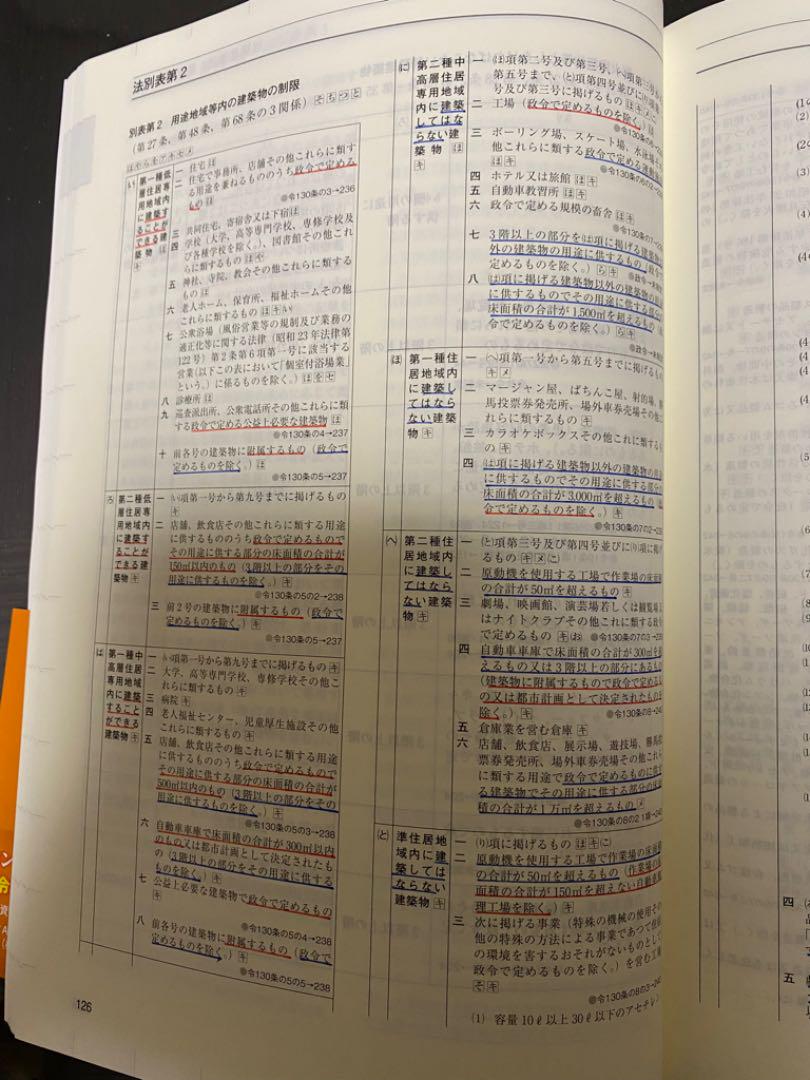 法別表第2
別表第2 用途地域等内の建築物の制限
(第27条，第48条，第68条の3関係) そちつと
ほやらモアキセメ
(い) 第一種低層住居専用地域内に建築することができる建築物 ほ キ
一 住宅 ほ
二 住宅で事務所，店舗その他これらに類す
る用途を兼ねるもののうち政令で定める
もの ほ
●令130条の3→236
三 共同住宅，寄宿舎又は下宿 ほ
四 学校（大学，高等専門学校，専修学校及
び各種学校を除く。），図書館その他これ
らに類するもの ほ や
五 神社，寺院，教会その他これらに類する
もの ほ
六 老人ホーム，保育所，福祉ホームその他
これらに類するもの
七 公衆浴場（風俗営業等の規制及び業務の
適正化等に関する法律（昭和23年法律第
122号）第2条第6項第一号に該当する
営業（以下この表において「個室付浴場業」
という。）に係るものを除く。）ほ を セ
八 診療所 ほ
九 巡査派出所，公衆電話所その他これらに類
する政令で定める公益上必要な建築物 ほ
●令130条の4→237
十 前各号の建築物に附属するもの（政令で
定めるものを除く。）ほ
●令130条の5→237
(ろ) 第二種低層住居専用地域内に建築することができる建築物 キ
一 (い)項第一号から第九号までに掲げるもの
キ
二 店舗，飲食店その他これらに類する用途
に供するもののうち政令で定めるもので
その用途に供する部分の床面積の合計が
150㎡以内のもの（3階以上の部分をその
用途に供するものを除く。）キ
●令130条の5の2→238
三 前2号の建築物に附属するもの（政令で
定めるものを除く。）キ
●令130条の5→237
(は) 第一種中高層住居専用地域内に建築することができる建築物 キ
一 (い)項第一号から第九号までに掲げるもの キ
二 大学，高等専門学校，専修学校その他こ
れらに類するもの キ
三 病院 キ
四 老人福祉センター，児童厚生施設その他
これらに類するもの キ
五 店舗，飲食店その他これらに類する用途
に供するもののうち政令で定めるもので
その用途に供する部分の床面積の合計が
500㎡以内のもの（3階以上の部分をその
用途に供するものを除く。）キ
●令130条の5の3→238
六 自動車車庫で床面積の合計が300㎡以内
のもの又は都市計画として決定されたも
の（3階以上の部分をその用途に供する
ものを除く。）キ
七 公益上必要な建築物で政令で定めるもの
キ
●令130条の5の4→238
八 前各号の建築物に附属するもの（政令で
定めるものを除く。）キ
●令130条の5の5→238
126
(に) 第二種中高層住居専用地域内に建築してはならない建築物 ほ キ
一 (ほ)項第二号及び第三号，(へ)項第三号
第五号まで，(と)項第四号並びに(り)項
号及び第三号に掲げるもの
二 工場（政令で定めるものを除く。）
三 ボーリング場，スケート場，水泳場
他これらに類する政令で定める運動施
四 ホテル又は旅館 ほ キ
五 自動車教習所 ほ キ
六 政令で定める規模の畜舎 ほ キ
七 3階以上の部分を(は)項に掲げる建築物
外の建築物の用途に供するもの（政令
定めるものを除く。）ら キ
八 (は)項に掲げる建築物以外の建築物の
に供するものでその用途に供する部分
床面積の合計が1,500㎡を超えるもの
令で定めるものを除く。）ら キ
(ほ) 第一種住居地域内に建築してはならない建築物 キ
一 (へ)項第一号から第五号までに掲げるもの
キ メ
二 マージャン屋，ぱちんこ屋，射的場，
馬投票券発売所，場外車券売場その他
れらに類するもの キ
三 カラオケボックスその他これに類する
の キ
四 (は)項に掲げる建築物以外の建築物の
に供するものでその用途に供する部分
床面積の合計が3,000㎡を超えるもの
令で定めるものを除く。）キ
●令130条の7の2
(へ) 第二種住居地域内に建築してはならない建築物 キ
一 (と)項第三号及び第四号並びに(り)項に掲
るもの キ メ に
二 原動機を使用する工場で作業場の床面
の合計が50㎡を超えるもの キ
三 劇場，映画館，演芸場若しくは観覧場
はナイトクラブその他これに類する政
で定めるもの キ お ●令130条の7の3
四 自動車車庫で床面積の合計が300㎡を
えるもの又は3階以上の部分にあるもの
（建築物に附属するもので政令で定める
の又は都市計画として決定されたものを
除く。）キ ●令130条の8
五 倉庫業を営む倉庫 キ
六 店舗，飲食店，展示場，遊技場，勝馬投
票券発売所，場外車券売場その他これ
に類する用途で政令で定めるものに供
る建築物でその用途に供する部分の床
積の合計が1万㎡を超えるもの メ
●令130条の8の2
(と) 準住居地域内に建築してはならない建築物 キ
一 (り)項に掲げるもの ほ キ に
二 原動機を使用する工場で作業場の床面
の合計が50㎡を超えるもの（作業場の
面積の合計が150㎡を超えない自動車修
理工場を除く。）キ
三 次に掲げる事業（特殊の機械の使用その
他の特殊の方法による事業であつて住居
の環境を害するおそれがないものとして
政令で定めるものを除く。）を営む工場
そ キ
●令130条の8の3
(1) 容量10ℓ以上30ℓ以下のアセチレン
四
五